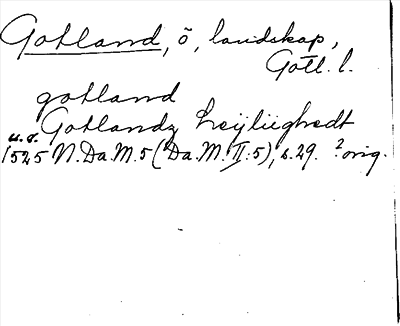 Gotland, ö, landskap,
Gotl. l.
gotland
Gotlandz heylüghedt
u. å.
1525 N.Da.M.5 (Da.M.II:5), s.29. ? orig.